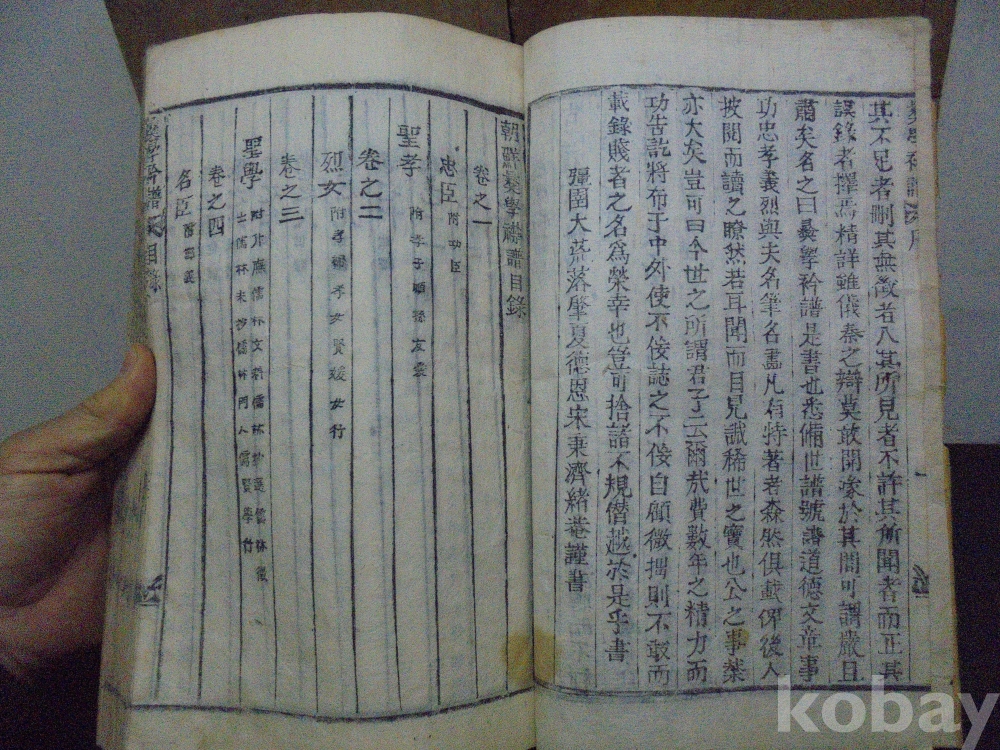 其不足者刪其無徵者八其所見者不許其所聞者而正其
誤錄者擇焉精詳雖儀秦之辯莫敢開喙於其間可謂嚴且
肅矣名之曰彛學衿譜是書也悉備世譜號譜道德文章事
功忠孝義烈與夫名筆名畵凡有特著者森然俱載俾後人
披閱而讀之瞭然若耳聞而目見誠稀世之寶也公之事業
亦大矣豈可曰今世之所謂君子云爾哉費數年之精力而
功告訖將布于中外使不佞誌之不佞自顧微拙則不敢而
載錄賤者之名爲榮幸也豈可捨諸不規僭越於是乎書
彊圉大荒落肇夏德恩宋秉濟緒菴謹書
朝鮮彛學衿譜目錄
卷之一
忠臣 附功臣
聖孝 附孝子順孫友義
卷之二
烈女 附孝婦孝女賢媛女行
卷之三
聖學
卷之四
名臣
目錄
kobay